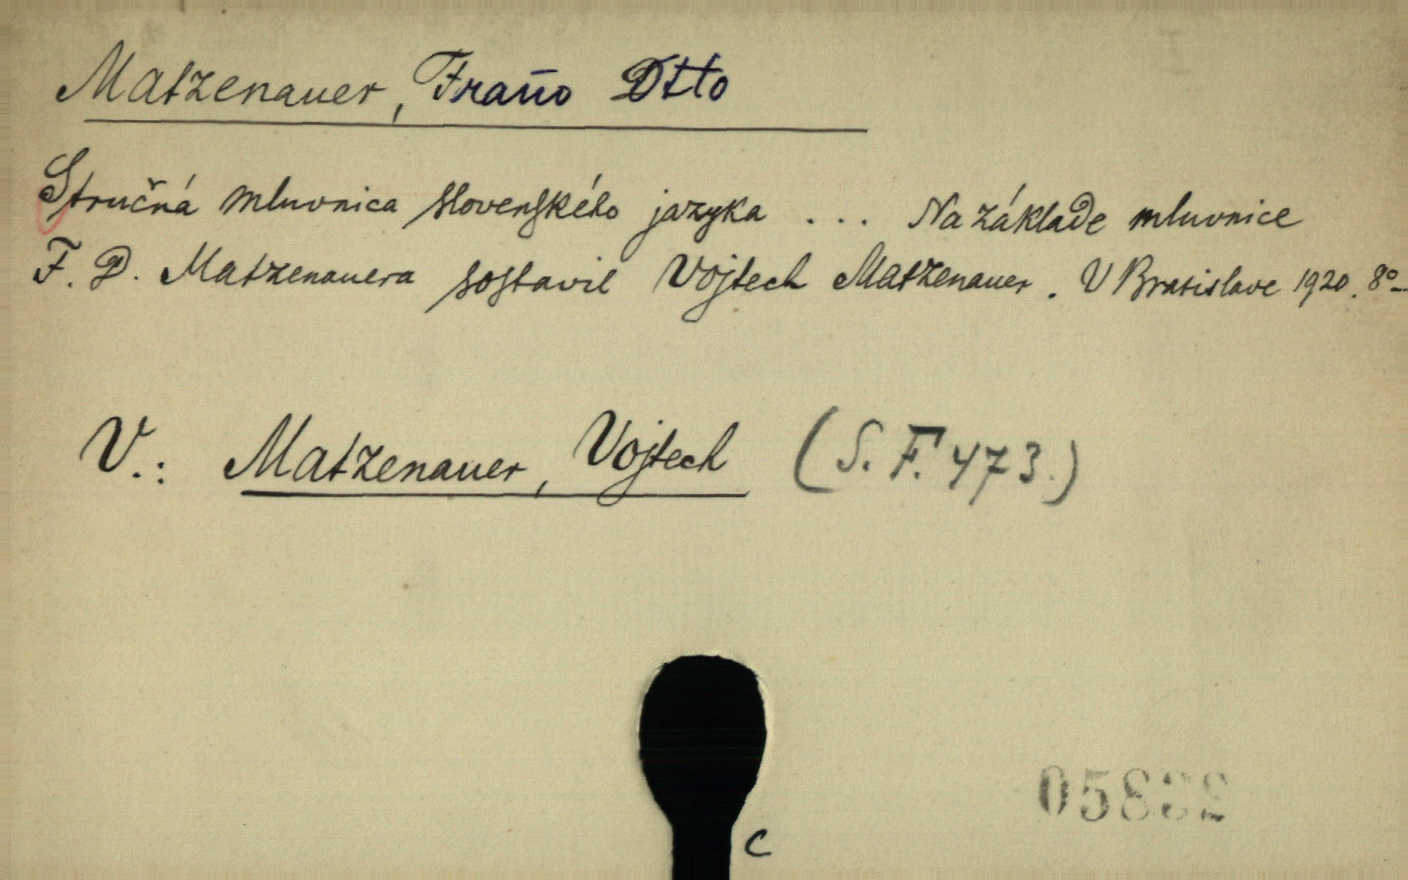 Matzenauer, Fraňo Otto
Stručná mluvnica slovenského jazyka ... Na základe mluvnice
F. O. Matzenauera sostavil Vojtech Matzenauer. V Bratislave 1920. 8°-
V.: Matzenauer, Vojtech (S. F. 473.)
c